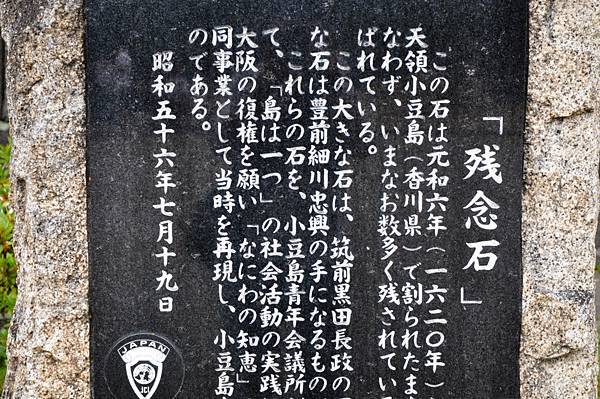 「残念石」
この石は元和六年(一六二〇年)
天領小豆島(香川県)で割られたま
なわず、いまなお数多く残されてい
ばれている。
この大きな石は、筑前黒田長政の
な石は豊前細川忠興の手になるもの
これらの石を、小豆島青年会議所
て、「島は一つ」の社会活動の実践
大阪の復権を願い「なにわの知恵」
同事業として当時を再現し、小豆島
のである。
昭和五十六年七月十九日
JAPAN
JCI